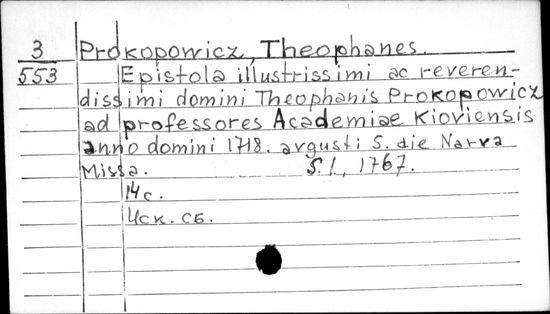 3 Prokopowicz, Theophanes.
553 Epistola illustrissimi ac reveren-
dissimi domini Theophanis Prokopowicz
ad professores Academiae Kioviensis
anno domini 1718. avgusti 5. die Narva
Missa. S. l., 1767.
14 с.
Иск. сб.